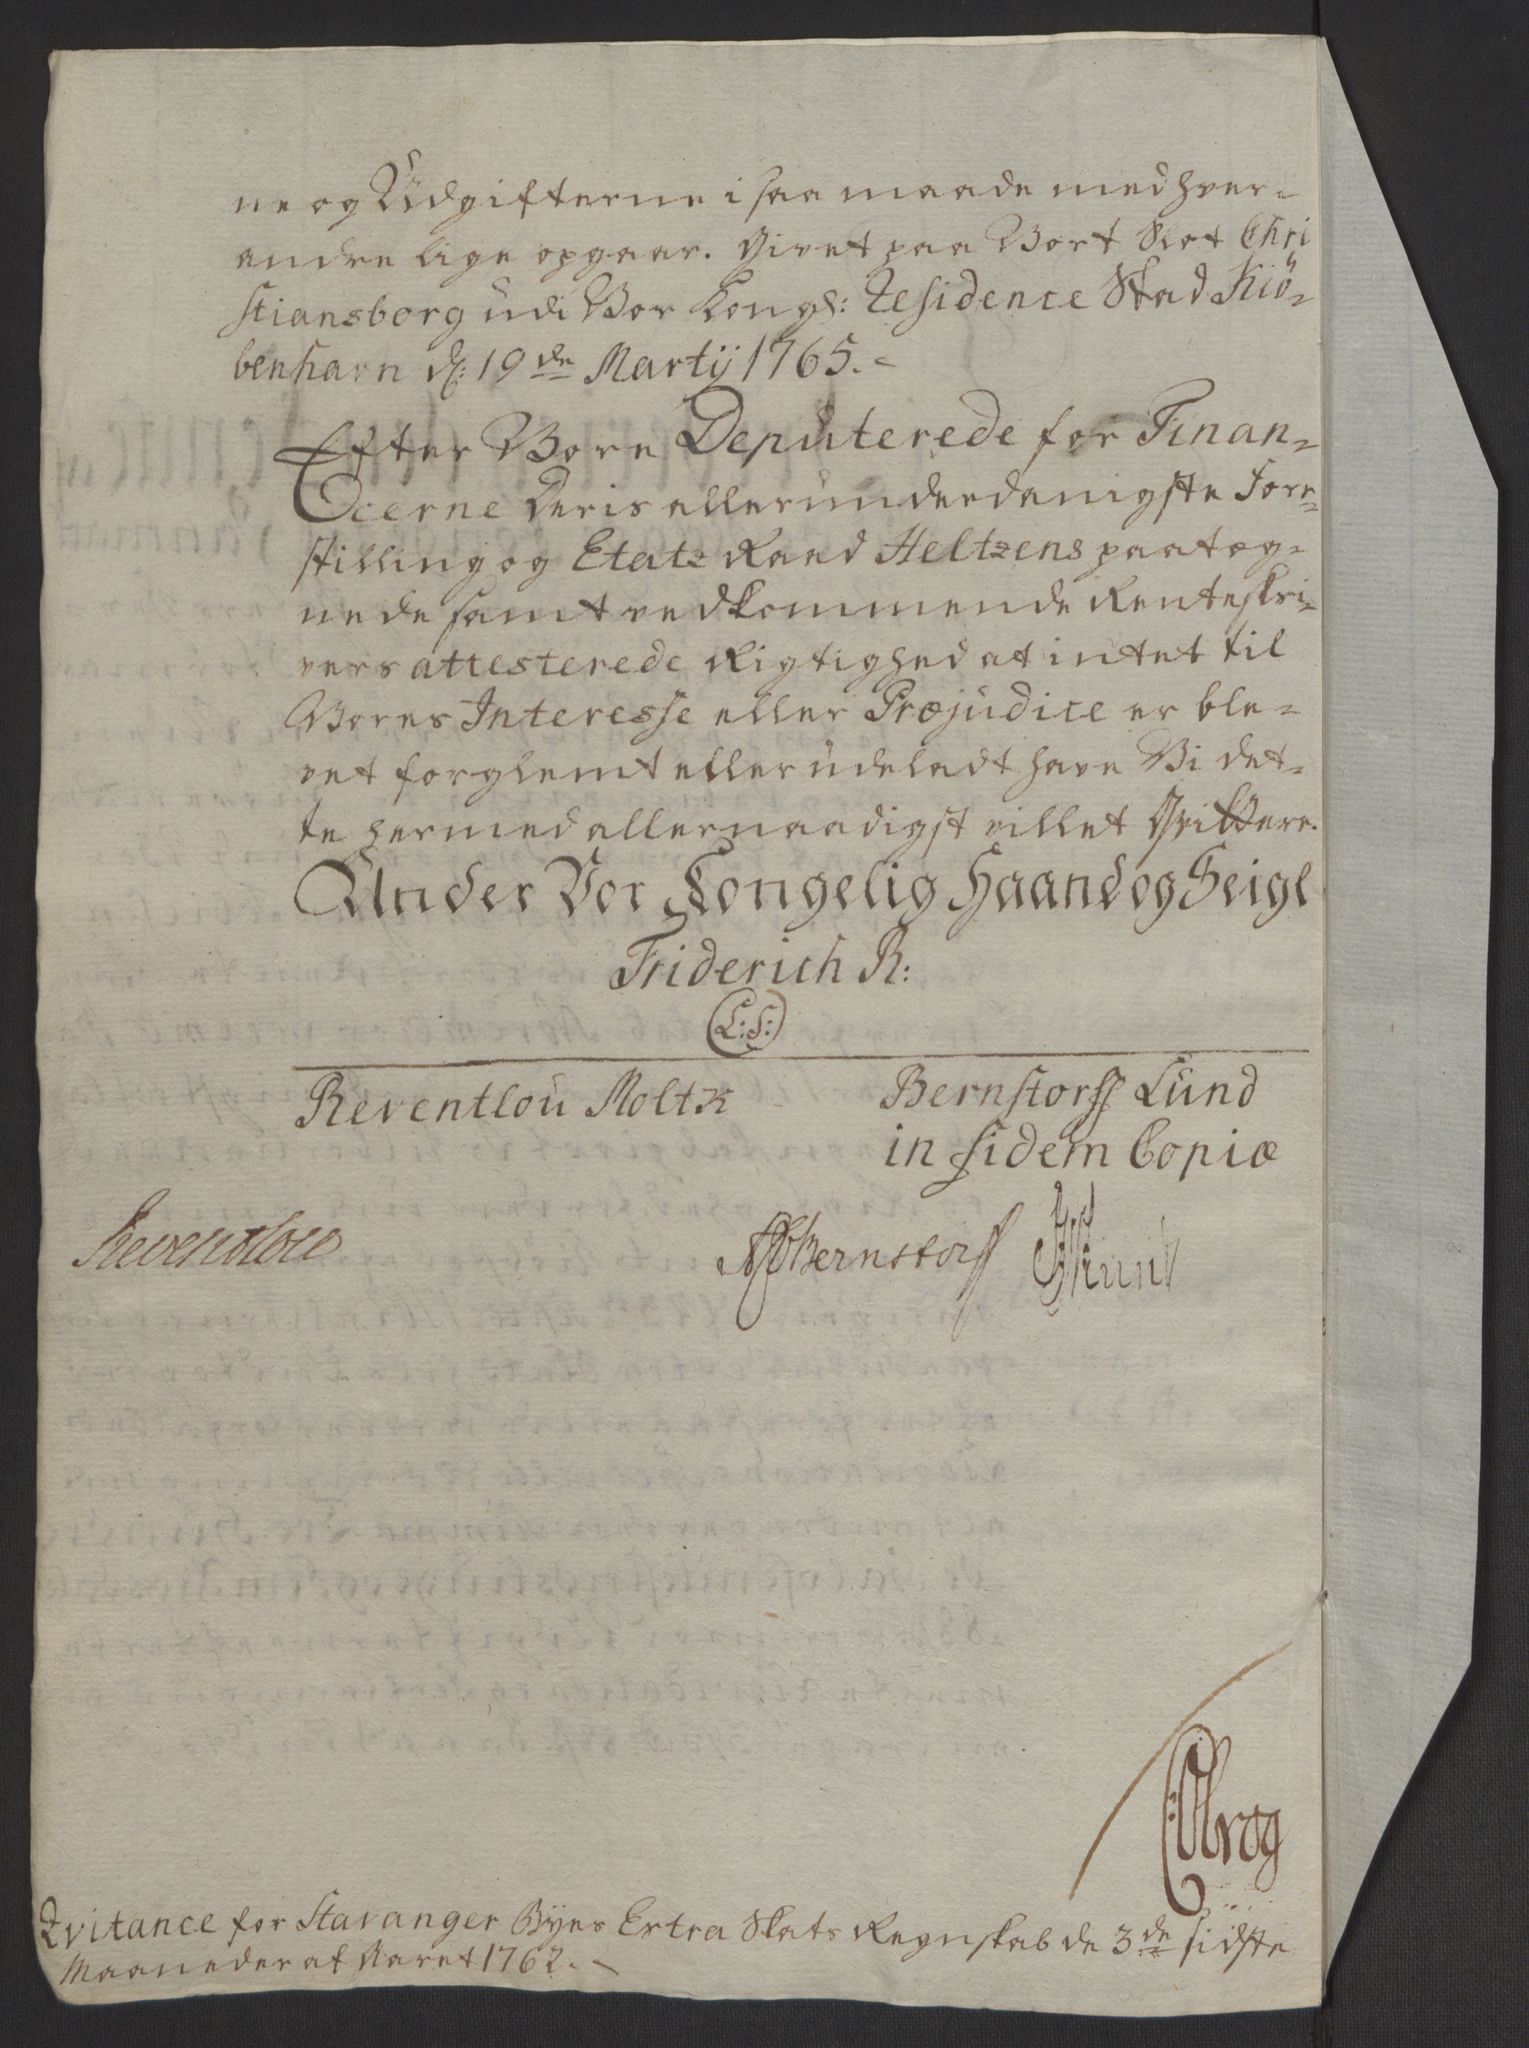 ne og Udgifterne i saa maade med hver-
andre lige opgaar. Givet paa Vort Slot Chri
stiansborg udi Vor Kongl: Residence Stad Kiö-
benhavn d: 19de Martij 1765.
Efter Vore Deputerede for Finan-
cerne Deris allerunderdanigste Fore-
stilling og Etatz Raad Heltzens paateg-
nede samt vedkommende Renteskri-
vers attesterede Rigtighed at intet til
Vores Interesse eller Præjudice er ble-
vet forglemt eller udeladt have Vi det-
te hermed allernaadigst villet Qvittere.
Under Vor Kongelig Haand og Seigl
Friderich R:
(L:S:)
Reventlou Moltk Bernstorff Lund
in fidem Copiæ
Reventlou Bernstorff
Qvitance for Stavanger Byes Extra Skats Regnskab de 3de sidste
Maaneder af Aaret 1762.